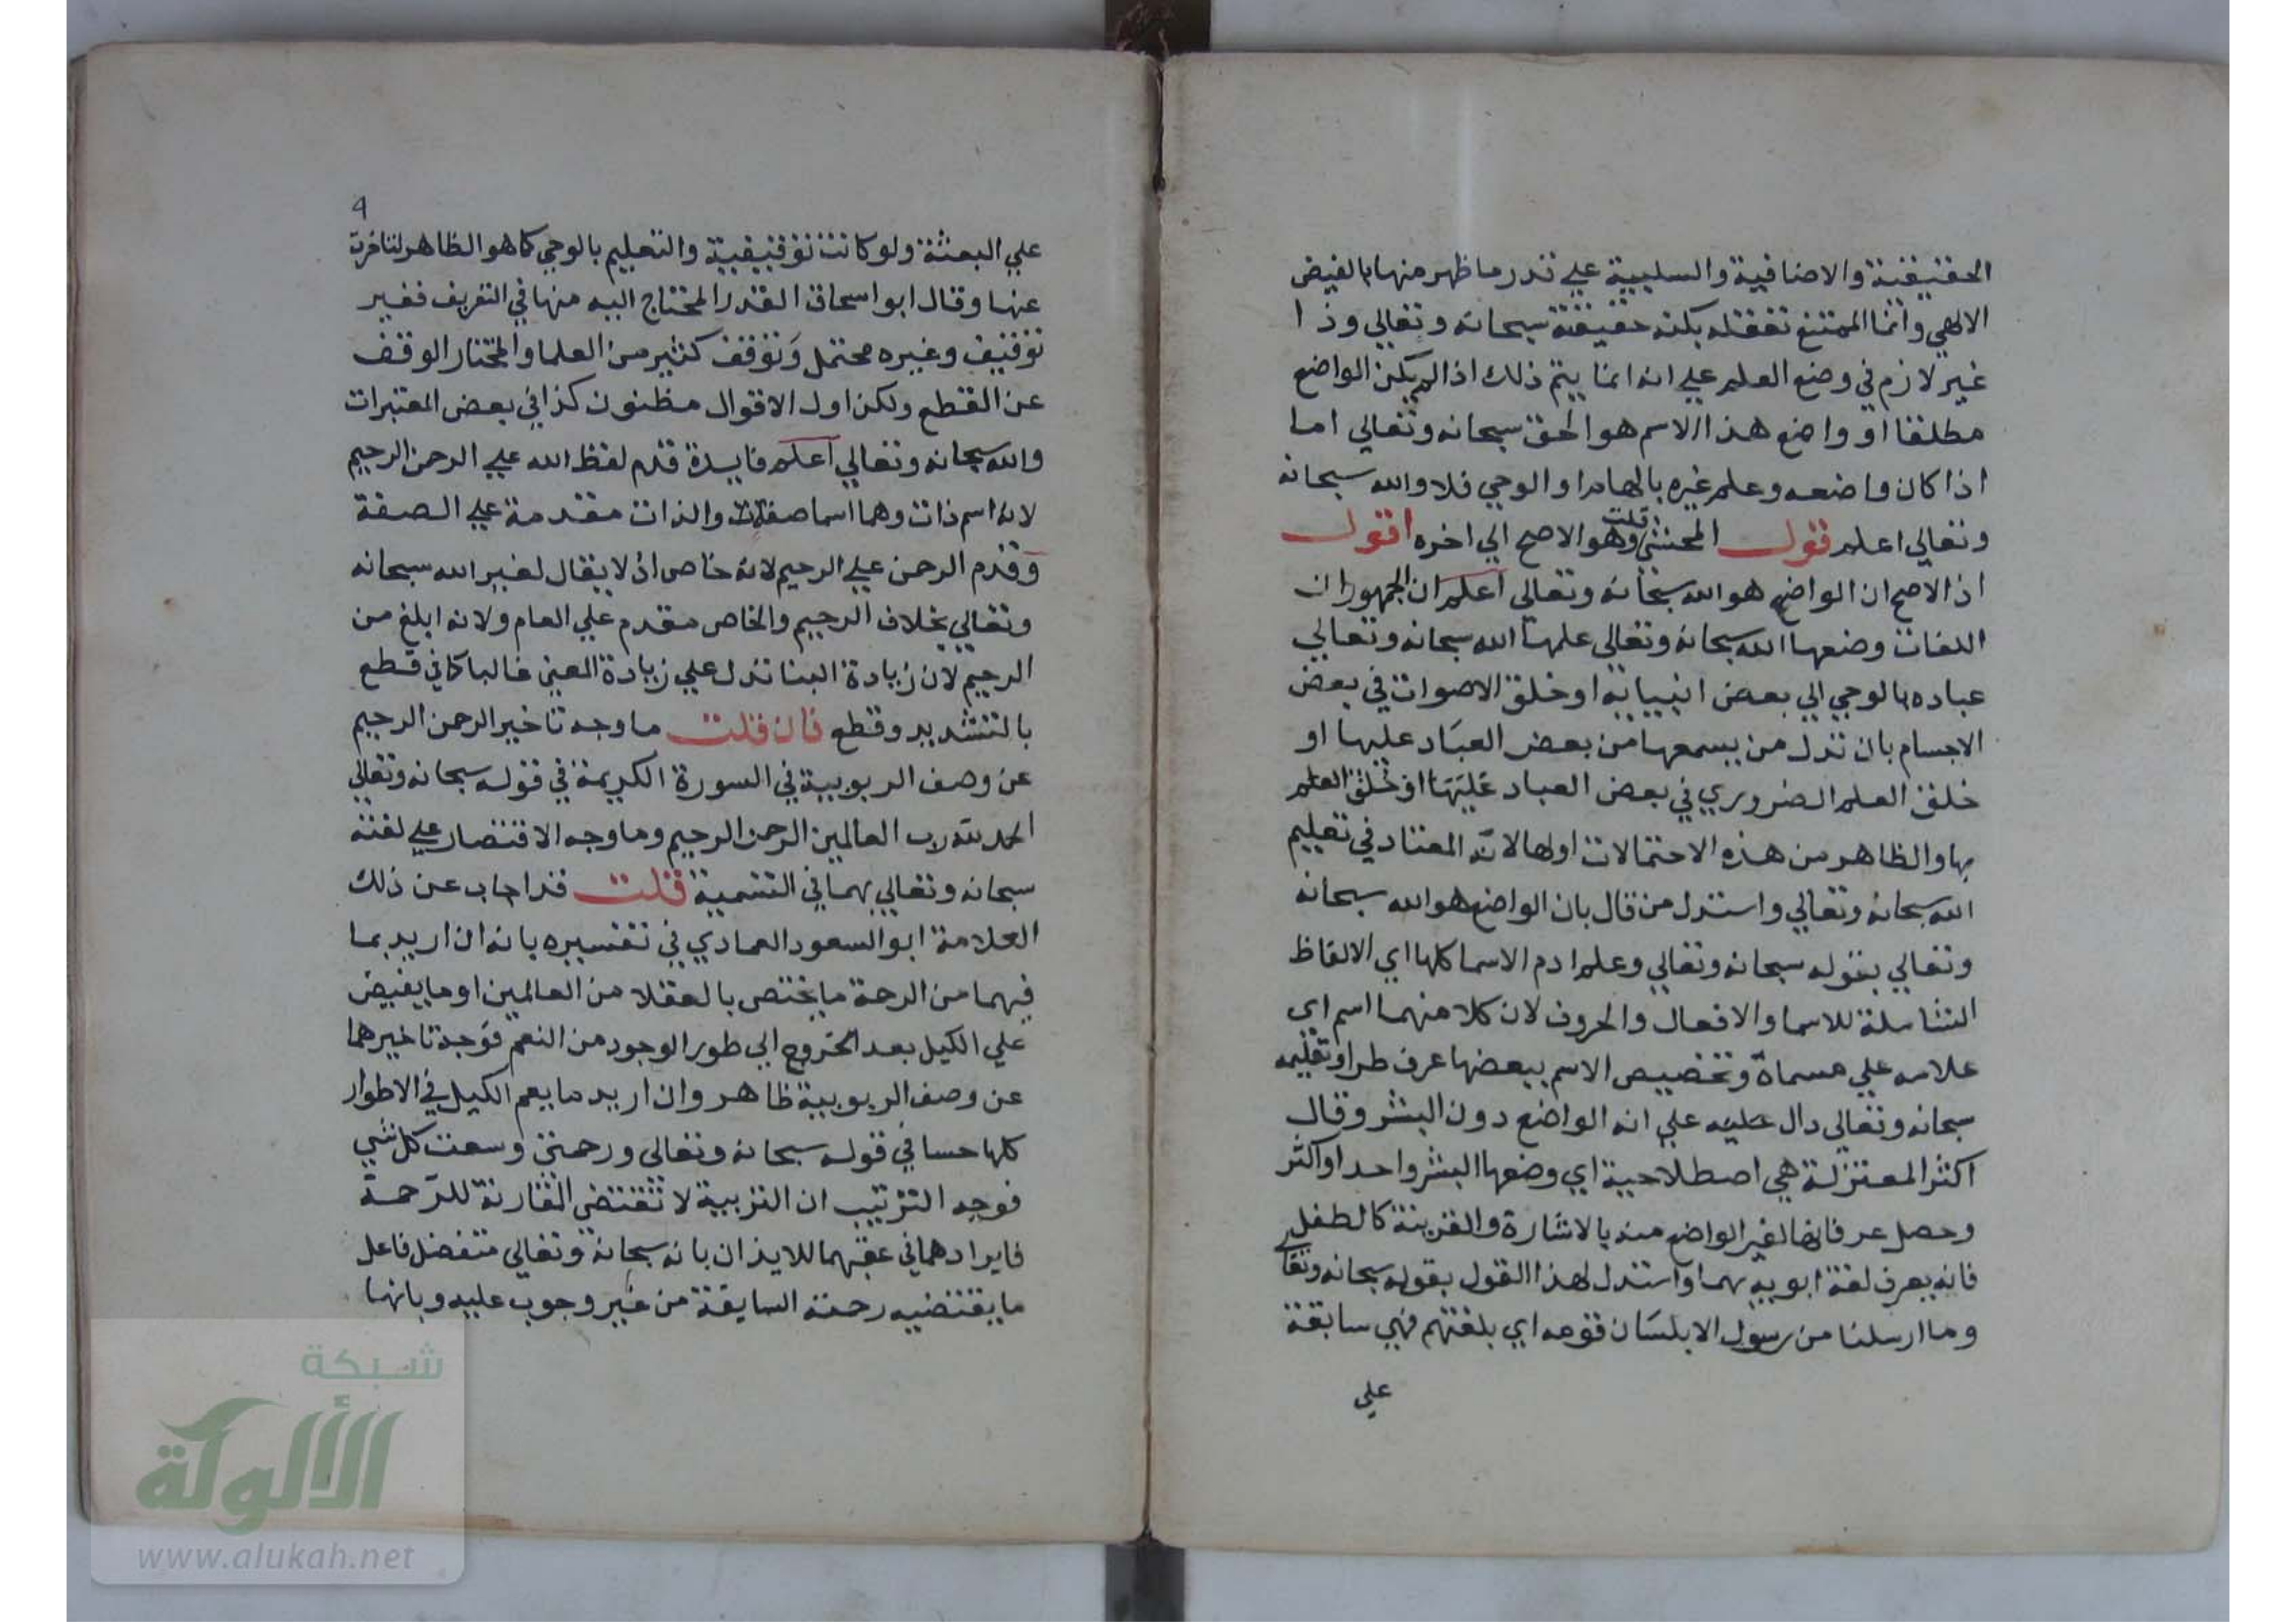 الحقيقية والاضافية والسلبية علي قدر ما ظهر منها بالفيض
الالهي وانما الممتنع تعقله بكنه حقيقته سبحانه وتعالي وذا
غير لازم في وضع العلم علي انه انما يتم ذلك اذا لم يكن الواضع
مطلقا او واضع هذا الاسم هو الحق سبحانه وتعالي اما
اذا كان واضعه وعلم غيره بالهام او الوحي فلا والله سبحانه
وتعالي اعلم قول المحشي قلت وهو الاصح الي اخره اقول
اذ الاصح ان الواضع هو الله سبحانه وتعالي اعلم ان الجمهور ان
اللغات وضعها الله سبحانه وتعالي علمها الله سبحانه وتعالي
عباده بالوحي الي بعض انبيايه او خلق الاصوات في بعض
الاجسام بان تدل من يسمعها من بعض العباد عليها او
خلق العلم الضروري في بعض العباد عليها او خلق العلم
بها والظاهر من هذه الاحتمالات اولها لانه المعتاد في تعليم
الله سبحانه وتعالي واستدل من قال بان الواضع هو الله سبحانه
وتعالي بقوله سبحانه وتعالي وعلم ادم الاسما كلها اي الالفاظ
الشاملة للاسما والافعال والحروف لان كلا منهما اسم اي
علامه علي مسماة وتخصيص الاسم ببعضها عرف طرا وتعليمه
سبحانه وتعالي دال عليه علي انه الواضع دون البشر وقال
اكثر المعتزلة هي اصطلاحية اي وضعها البشر واحد او اكثر
وحصل عرفانها لغير الواضع منه بالاشارة والقرينة كالطفل
فانه يعرف لغة ابويه بهما واستدل لهذا القول بقوله سبحانه وتعالي
وما ارسلنا من رسول الا بلسان قومه اي بلغتهم فهي سابقة
علي
٩
علي البعثة ولو كانت توقيفية والتعليم بالوحي كما هو الظاهر لتاخرت
عنها وقال ابو اسحاق القدر المحتاج اليه منها في التعريف فغير
توقيف وغيره محتمل وتوقف كثير من العلما والمختار الوقف
عن القطع ولكن اول الاقوال مظنون كذا في بعض المعتبرات
والله سبحانه وتعالي اعلم فايدة قدم لفظ الله علي الرحمن الرحيم
لانه اسم ذات وهما اسما صفات والذات مقدمة علي الصفة
وقدم الرحمن علي الرحيم لانه خاص اذ لا يقال لغير الله سبحانه
وتعالي بخلاف الرحيم والخاص مقدم علي العام ولانه ابلغ من
الرحيم لان زيادة البنا تدل علي زيادة المعني غالبا كما في قطع
بالتشديد وقطع فان قلت ما وجه تاخير الرحمن الرحيم
عن وصف الربوبية في السورة الكريمة في قوله سبحانه وتعالي
الحمد لله رب العالمين الرحمن الرحيم وما وجه الاقتصار علي لغته
سبحانه وتعالي بهما في التسمية قلت قد اجاب عن ذلك
العلامة ابو السعود العمادي في تفسيره بانه ان اريد بما
فيهما من الرحمة ما يختص بالعقلا من العالمين او ما يفيض
علي الكيل بعد الخروج الي طور الوجود من النعم فوجه تاخيرهما
عن وصف الربوبية ظاهر وان اريد ما يعم الكيل في الاطوار
كلها حسا في قوله سبحانه وتعالي ورحمتي وسعت كل شي
فوجه الترتيب ان التربية لا تقتضي المقارنة للرحمة
فايرادهما في عقبهما للايذان بانه سبحانه وتعالي متفضل فاعل
ما يقتضيه رحمته السابقة من غير وجوب عليه وبانها
شبكة
الألوكة
www.alukah.net